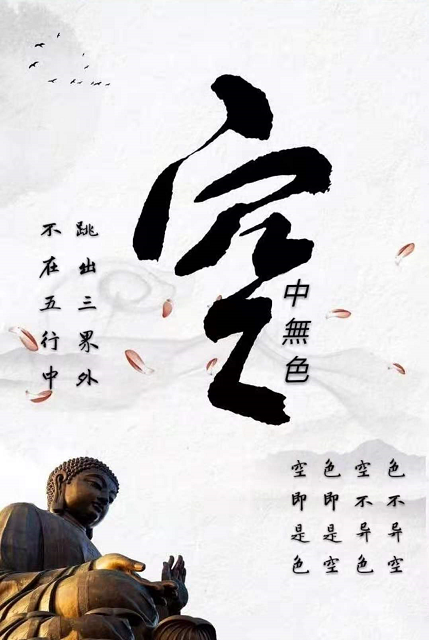 空
中無色
跳出三界外
不在五行中
色不异空
空不异色
色即是空
空即是色